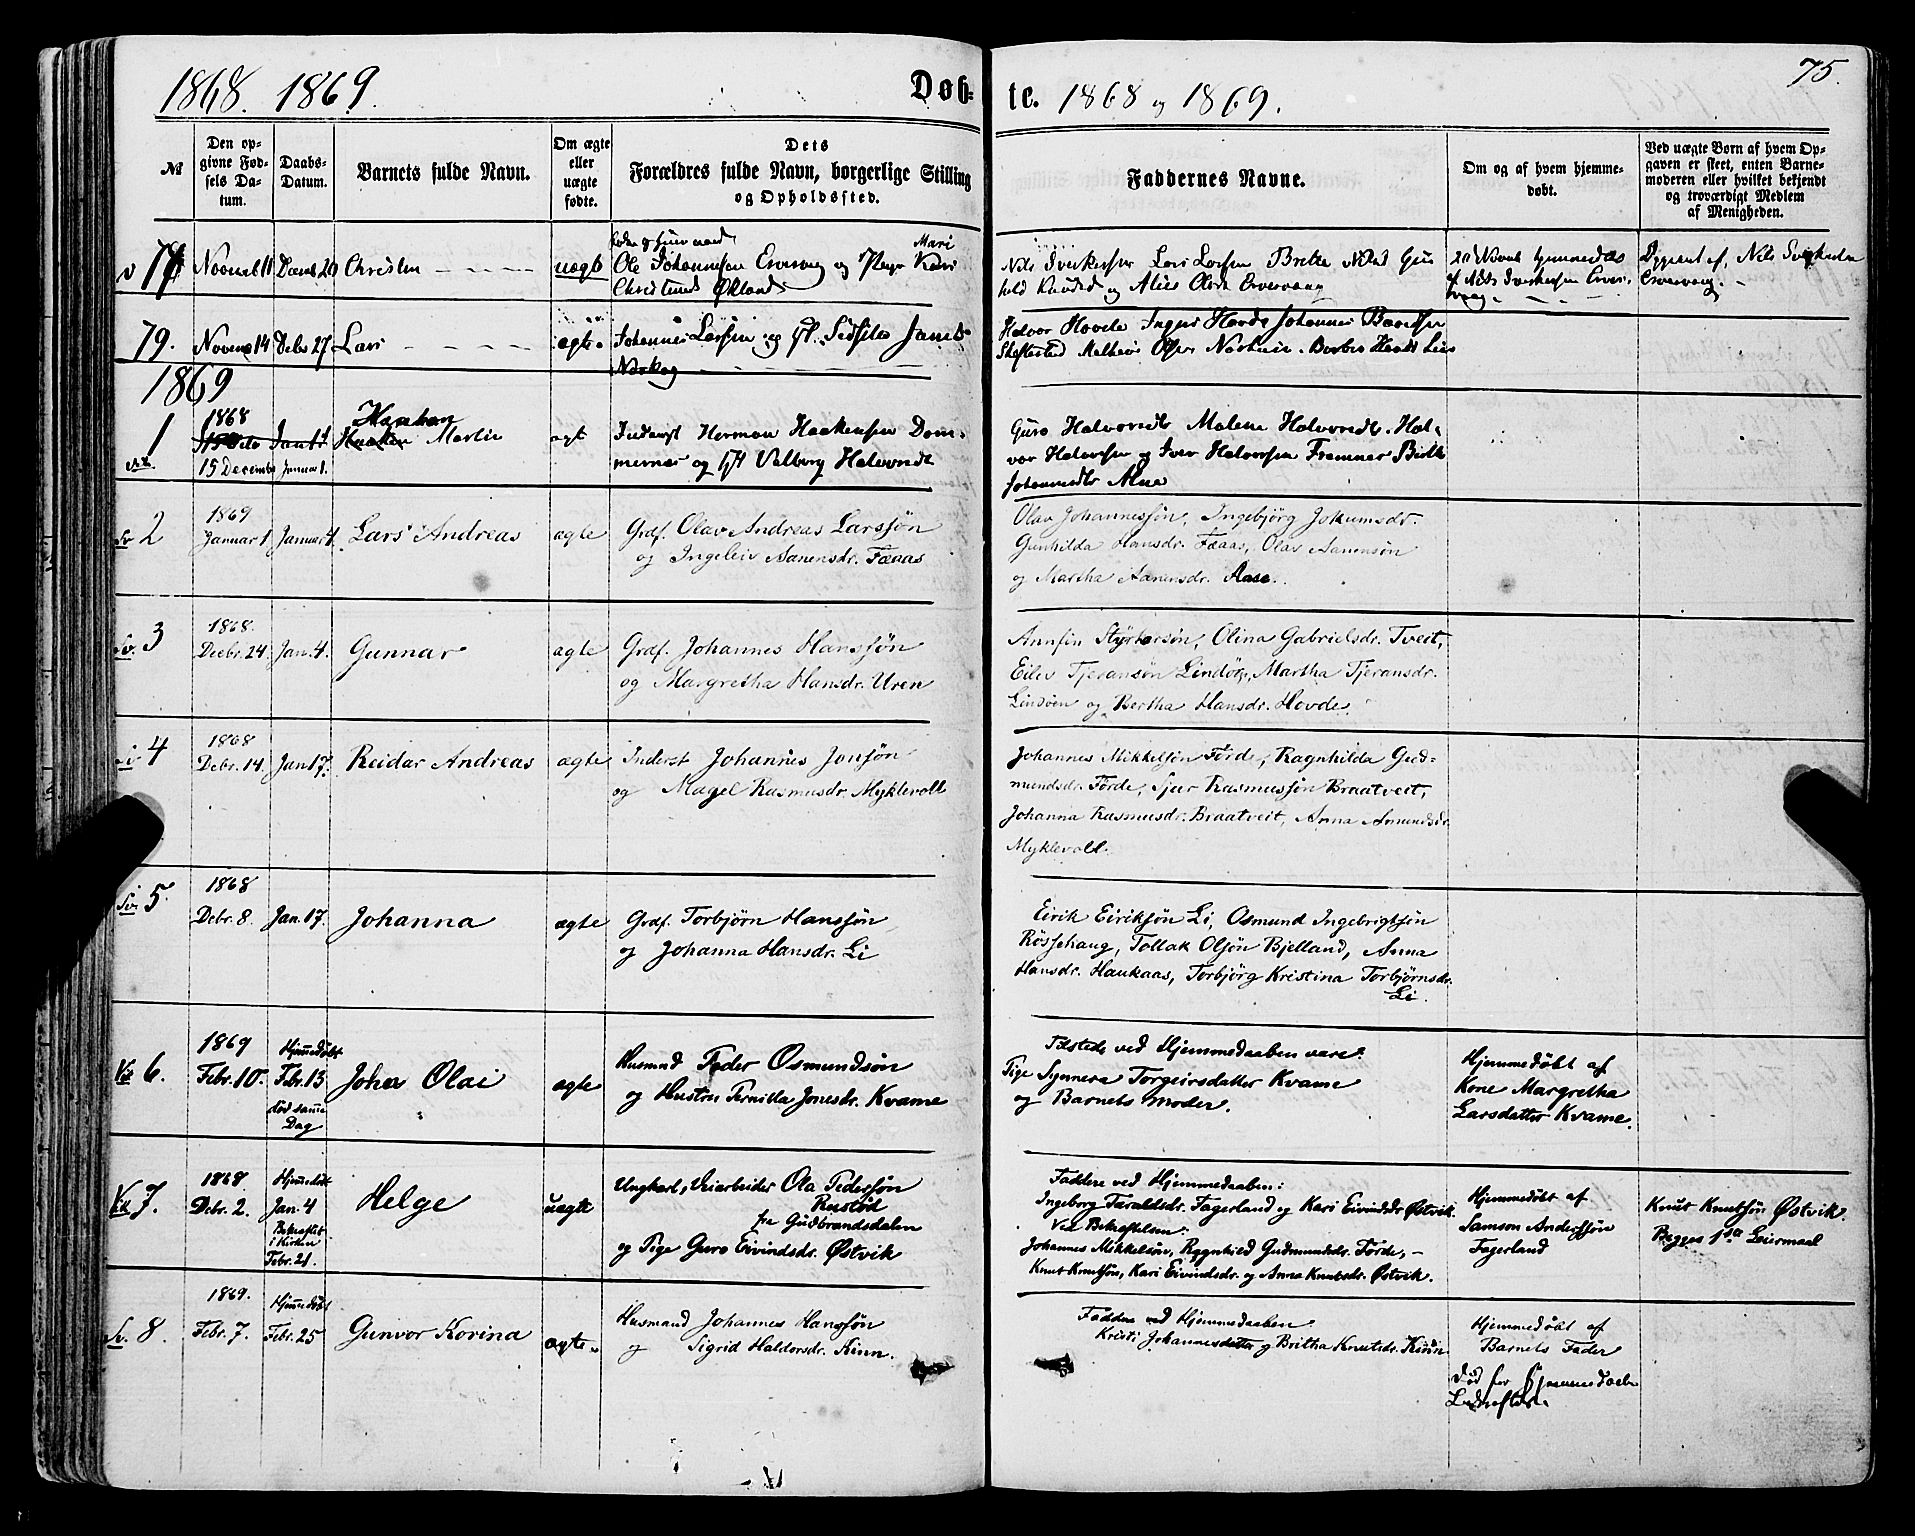 1868. 1869.
Døb-
te. 1868 og 1869.
75.
№
Den op-
givne Fød-
sels Da-
tum.
Daabs-
Datum.
Barnets fulde Navn.
Om ægte
eller
uægte
fødte.
Dets
Forældres fulde Navn, borgerlige Stilling
og Opholdssted.
Faddernes Navne.
Om og af hvem hjemme-
døbt.
Ved uægte Børn af hvem Op-
gaven er skeet, enten Barne-
moderen eller hvilket bekjendt
og troværdigt Medlem
af Menigheden.
Christen
uægte
Ole Johannesen og Pige Kari
Mari
Økland
79.
Novemb 14
Debr 27
Lars
ægte
Johannes Larsen og
Halvor Hovde Johannes
1869
1
1868
15 Decembr
Januar 1.
Haakon Martin
ægte
Inderst Herman Haakensen Dom-
mernæs og Valborg Halvorsdt
Guro Halvorsdt. Malene Halvorsdt. Hal-
vor Halvorsen og Iver Halvorsen Framnes
Johannesdtr
Sv 2
1869
Januar 1.
Januar 4.
Lars Andreas
ægte
Grdf. Olav Andreas Larssøn
og Ingeleiv Aanensdr. Fæaas
Olav Johannessøn, Ingebjørg Jokumsdr.
Gunhilda Hansdr. Fæaas, Olav Aanensøn
og Martha Aanensdr. Aase.
Sv. 3
1868.
Decbr. 24.
Jan. 4.
Gunnar
ægte
Grdf. Johannes Hanssøn
og Margretha Hansdr. Uren
Annfin Styrkersøn, Olina Gabrielsdr. Tveit,
Eilev Tjeransøn Lindøen, Martha Tjeransdr.
Lindøen og Bertha Hansdr. Hovde.
Sv 4
1868
Debr. 14.
Jan 17.
Reidar Andreas
ægte
Inderst Johannes Jonsøn
og Magel Rasmusdr. Myklevoll
Johannes Mikkelsøn Förde, Ragnhilda Gud-
mundsdr. Förde, Sjur Rasmussøn Braatveit,
Johanna Rasmusdr. Braatveit, Anna Amundsdr.
Myklevoll.
Sv. 5
1868
Debr. 8.
Jan. 17.
Johanna
ægte
Grdf. Torbjørn Hanssøn
og Johanna Hansdr. Li
Eirik Eiriksøn Li, Osmund Ingebrigtsøn
Røssehaug, Tollak Olsøn Bjelland, Anna
Hansdr. Haukaas, Torbjørg Kristina Torbjørnsdr.
Li.
Vk 6.
1869
Febr. 10.
Hjemmedøbt
Febr. 13
død samme
Dag
Johan Olai
ægte
Husmand Peder Osmundsøn
og Hustru Pernilla Jonesdr. Kvame
Tilstede ved Hjemmedaaben vare:
Pige Synnera Torgeirsdatter Kvame
og Barnets Moder.
Hjemmedøbt af
Kone Margretha
Larsdatter Kvame.
Vk 7.
1868
Debr. 2.
Hjemmedøbt
Jan. 4
Bekræftet
i Kirken
Febr. 21.
Helge
uægte
Ungkarl, Veiarbeider Ola Pedersøn
Rustød
fra Gudbrandsdalen
og Pige Guro Eivindsdr. Østvik
Faddere ved Hjemmedaaben:
Ingeborg Taraldsdr. Fagerland og Kari Eivindsdr Østvik.
Ved Bekræftelsen:
Johannes Mikkelsøn, Ragnhild Gudmundsdr. Förde, -
Knut Knutsøn, Kari Eivindsdr. og Anna Knutsdr. Østvik.
Hjemmedøbt af
Samson Anderssøn
Fagerland
Knut Knutsøn Østvik.
Begges 1ste Leiermaal
Sv. 8.
1869.
Febr. 7.
Hjemmedøbt
Febr. 25
Gunvor Korina
ægte
Husmand Johannes Hanssøn
og Sigrid Haldorsdr. Kinn.
Faddere ved Hjemmedaaben
Kristi Johannesdatter og Britha Knutsdr. Kinn
Hjemmedøbt af
Barnets Fader
Død før Hjemmedaabens